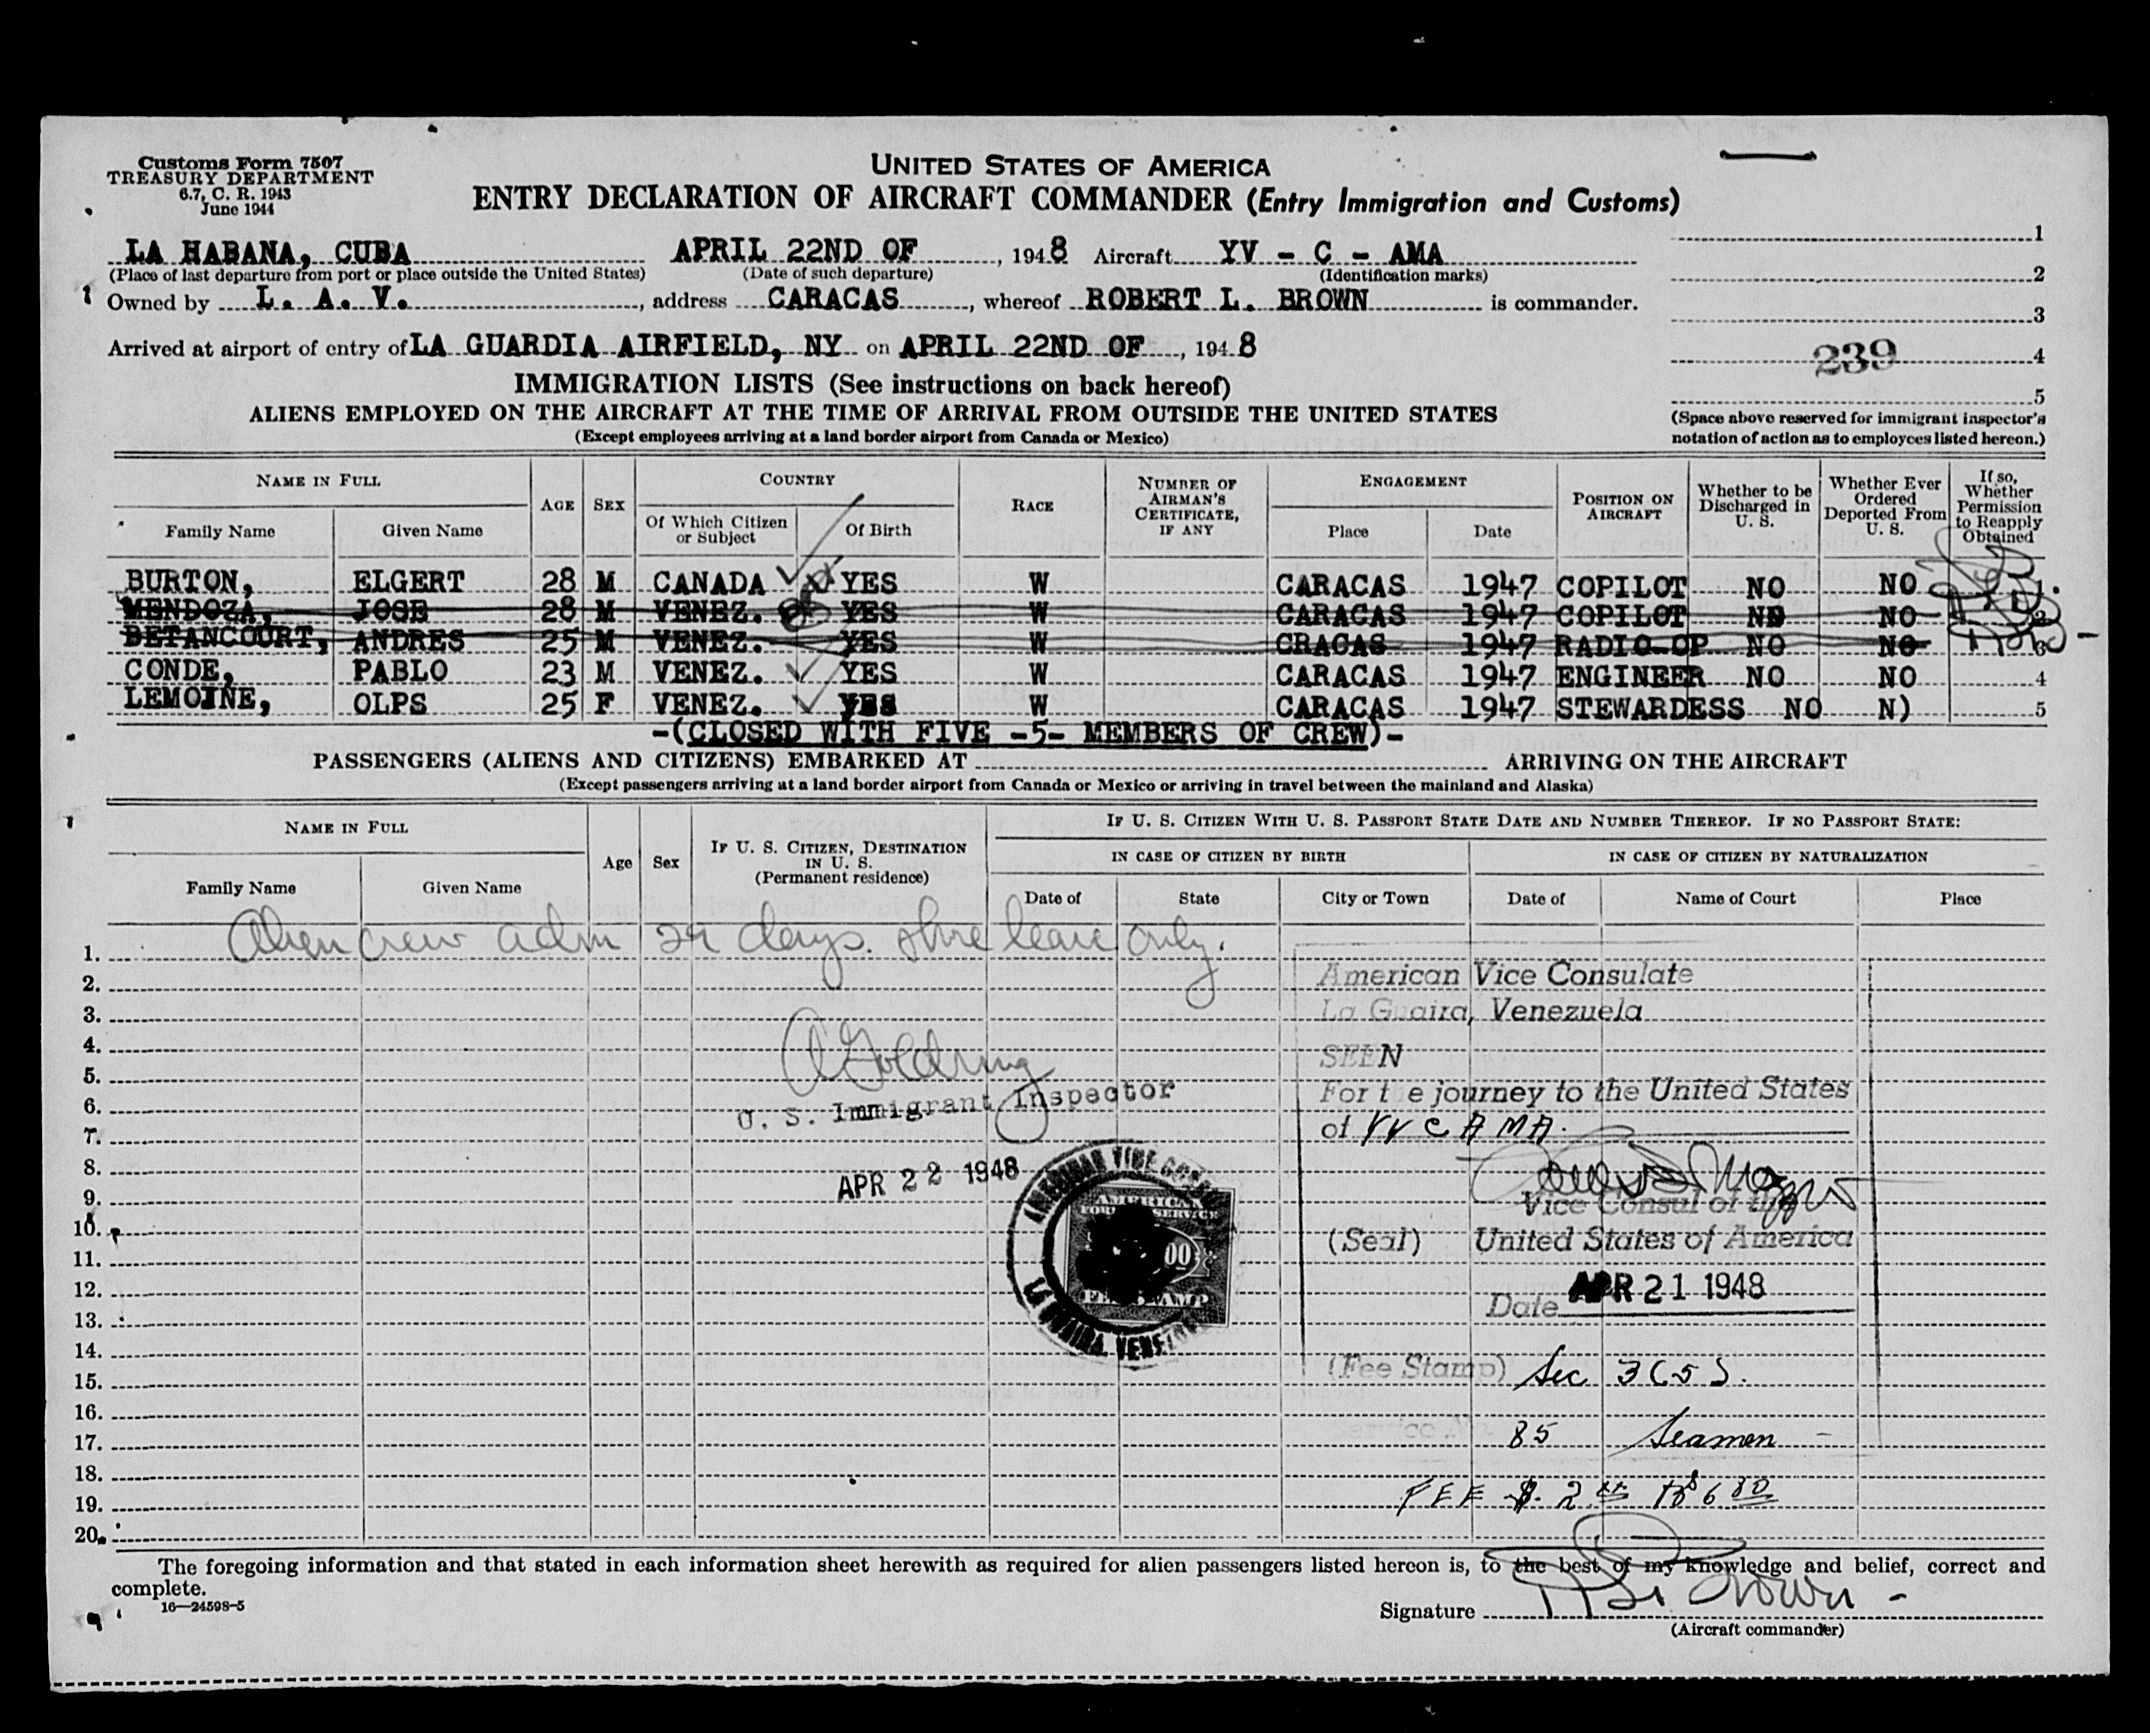 Customs Form 7507
TREASURY DEPARTMENT
6.7, C. R. 1943
June 1944
UNITED STATES OF AMERICA
ENTRY DECLARATION OF AIRCRAFT COMMANDER (Entry Immigration and Customs)
LA HABANA, CUBA APRIL 22ND OF, 1948 Aircraft YV - C - AMA
(Place of last departure from port or place outside the United States) (Date of such departure) (Identification marks)
Owned by L. A. V., address CARACAS, whereof ROBERT L. BROWN is commander.
Arrived at airport of entry of LA GUARDIA AIRFIELD, NY on APRIL 22ND OF, 1948
1
2
3
239 4
5
(Space above reserved for immigrant inspector's notation of action as to employees listed hereon.)
IMMIGRATION LISTS (See instructions on back hereof)
ALIENS EMPLOYED ON THE AIRCRAFT AT THE TIME OF ARRIVAL FROM OUTSIDE THE UNITED STATES
(Except employees arriving at a land border airport from Canada or Mexico)
NAME IN FULL AGE SEX COUNTRY RACE NUMBER OF AIRMAN'S CERTIFICATE, IF ANY ENGAGEMENT POSITION ON AIRCRAFT Whether to be Discharged in U. S. Whether Ever Ordered Deported From U. S. If so, Whether Permission to Reapply Obtained
Family Name Given Name Of Which Citizen or Subject Of Birth Place Date
BURTON, ELGERT 28 M CANADA YES W CARACAS 1947 COPILOT NO NO
MENDOZA, JOSE 28 M VENEZ. YES W CARACAS 1947 COPILOT NO NO 2
BETANCOURT, ANDRES 25 M VENEZ. YES W CRACAS 1947 RADIO-OP NO NO 3
CONDE, PABLO 23 M VENEZ. YES W CARACAS 1947 ENGINEER NO NO 4
LEMOINE, OLPS 25 F VENEZ. YES W CARACAS 1947 STEWARDESS NO N) 5
-(CLOSED WITH FIVE -5- MEMBERS OF CREW)-
PASSENGERS (ALIENS AND CITIZENS) EMBARKED AT ARRIVING ON THE AIRCRAFT
(Except passengers arriving at a land border airport from Canada or Mexico or arriving in travel between the mainland and Alaska)
NAME IN FULL Age Sex IF U. S. CITIZEN, DESTINATION IN U. S. (Permanent residence) IF U. S. CITIZEN WITH U. S. PASSPORT STATE DATE AND NUMBER THEREOF. IF NO PASSPORT STATE:
IN CASE OF CITIZEN BY BIRTH IN CASE OF CITIZEN BY NATURALIZATION
Family Name Given Name Date of State City or Town Date of Name of Court Place
1. Alien crew adm 29 days. shore leave only.
2. American Vice Consulate
3. La Guaira, Venezuela
4. A Goldring SEEN
5. For t e journey to the United States
6. U. S. Immigrant Inspector
7. of YV C A M A.
8. APR 22 1948
9. Vice Consul of the
10. (Seal) United States of America
11.
12. APR 21 1948
13. Date
14.
15. (Fee Stamp) Sec 3(5).
16.
17. 85 Seamen
18.
19. FEE $. 2
20.
AMERICAN VICE CONSU
AMERICAN
FOREIGN SERVICE
00
FEE STAMP
LA GUAIRA, VENEZU
The foregoing information and that stated in each information sheet herewith as required for alien passengers listed hereon is, to the best of my knowledge and belief, correct and complete.
16—24598-5
Signature R L Brown
(Aircraft commander)